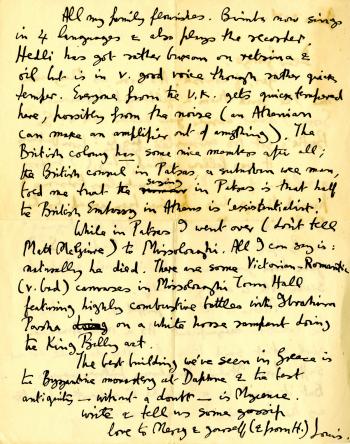 All my family flourishes. Bimba now sings
in 4 languages & also plays the recorder,
Hedli has got rather browned on retsina &
oil but is in v. good voice though rather quick
temper. Everyone from the U.K. gets quick tempered
here, possibly from the noise (an Athenian
can make an amplifier out of anything). The
British colony has some nice members after all;
the British consul in Patras, a suborn wee man,
told me that the saying in Patras is that half
the British Embassy in Athens is 'existentialist'.
While in Patras I went over (don't tell
Matt McGuire) to Missolonghi. All I can say is:
naturally he died. There are some Victorian-Romantic
(v. bad) canvases in Missolonghi Town Hall
featuring highly combustive battles with Ibrahim
Pasha on a white horse rampant doing
the King Billy act.
The best building we've seen in Greece is
the Byzantine monastery at Daphne & the best
antiquity — without a doubt — is Mycenae.
Write & tell us some gossip
love to Mercy & yourself (& from H.) Louis.